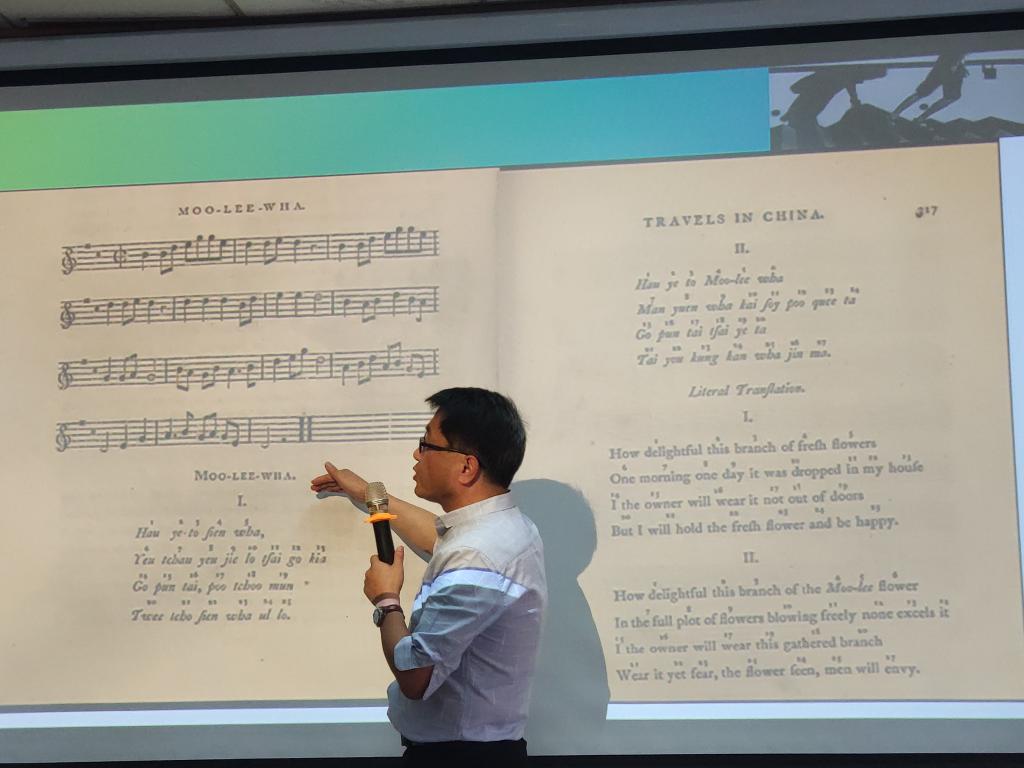 MOO-LEE-WHA.
MOO-LEE-WHA.
I.
Hau ye-to ſien wha,
Yeu tchau yeu jie lo tſai go kia
Go pun tai, poo tchoo mun
Twee tcho ſien wha ul lo.
TRAVELS IN CHINA.
317
II.
Hau ye to Moo-lee wha
Man yuen wha kai ſoy poo quee ta
Go pun tai tſai ye ta
Tai you kung kan wha jin ma.
Literal Tranſlation.
I.
How delightful this branch of freſh flowers
One morning one day it was dropped in my houſe
I the owner will wear it not out of doors
But I will hold the freſh flower and be happy.
II.
How delightful this branch of the Moo-lee flower
In the full plot of flowers blowing freely none excels it
I the owner will wear this gathered branch
Wear it yet fear, the flower ſeen, men will envy.